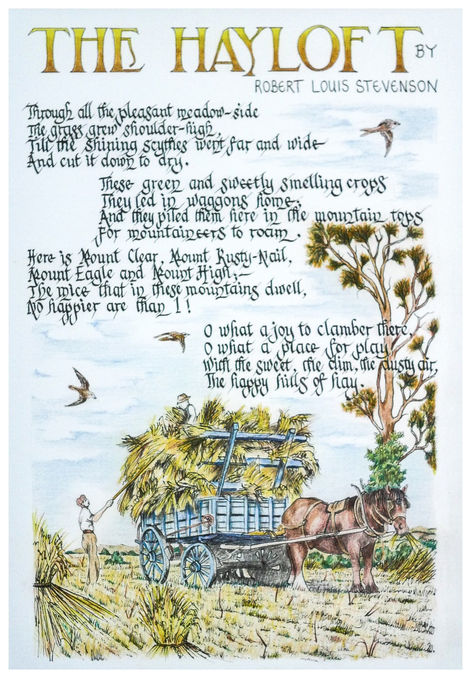 THE HAYLOFT BY
ROBERT LOUIS STEVENSON
Through all the pleasant meadow-side
The grass grew shoulder-high,
Till the shining scythes went far and wide
And cut it down to dry.
These green and sweetly smelling crops
They led in waggons home;
And they piled them here in the mountain tops
For mountaineers to roam.
Here is Mount Clear, Mount Rusty-Nail,
Mount Eagle and Mount High;-
The mice that in these mountains dwell,
No happier are than I!
O what a joy to clamber there,
O what a place for play
With the sweet, the dim, the dusty air,
The happy hills of hay.